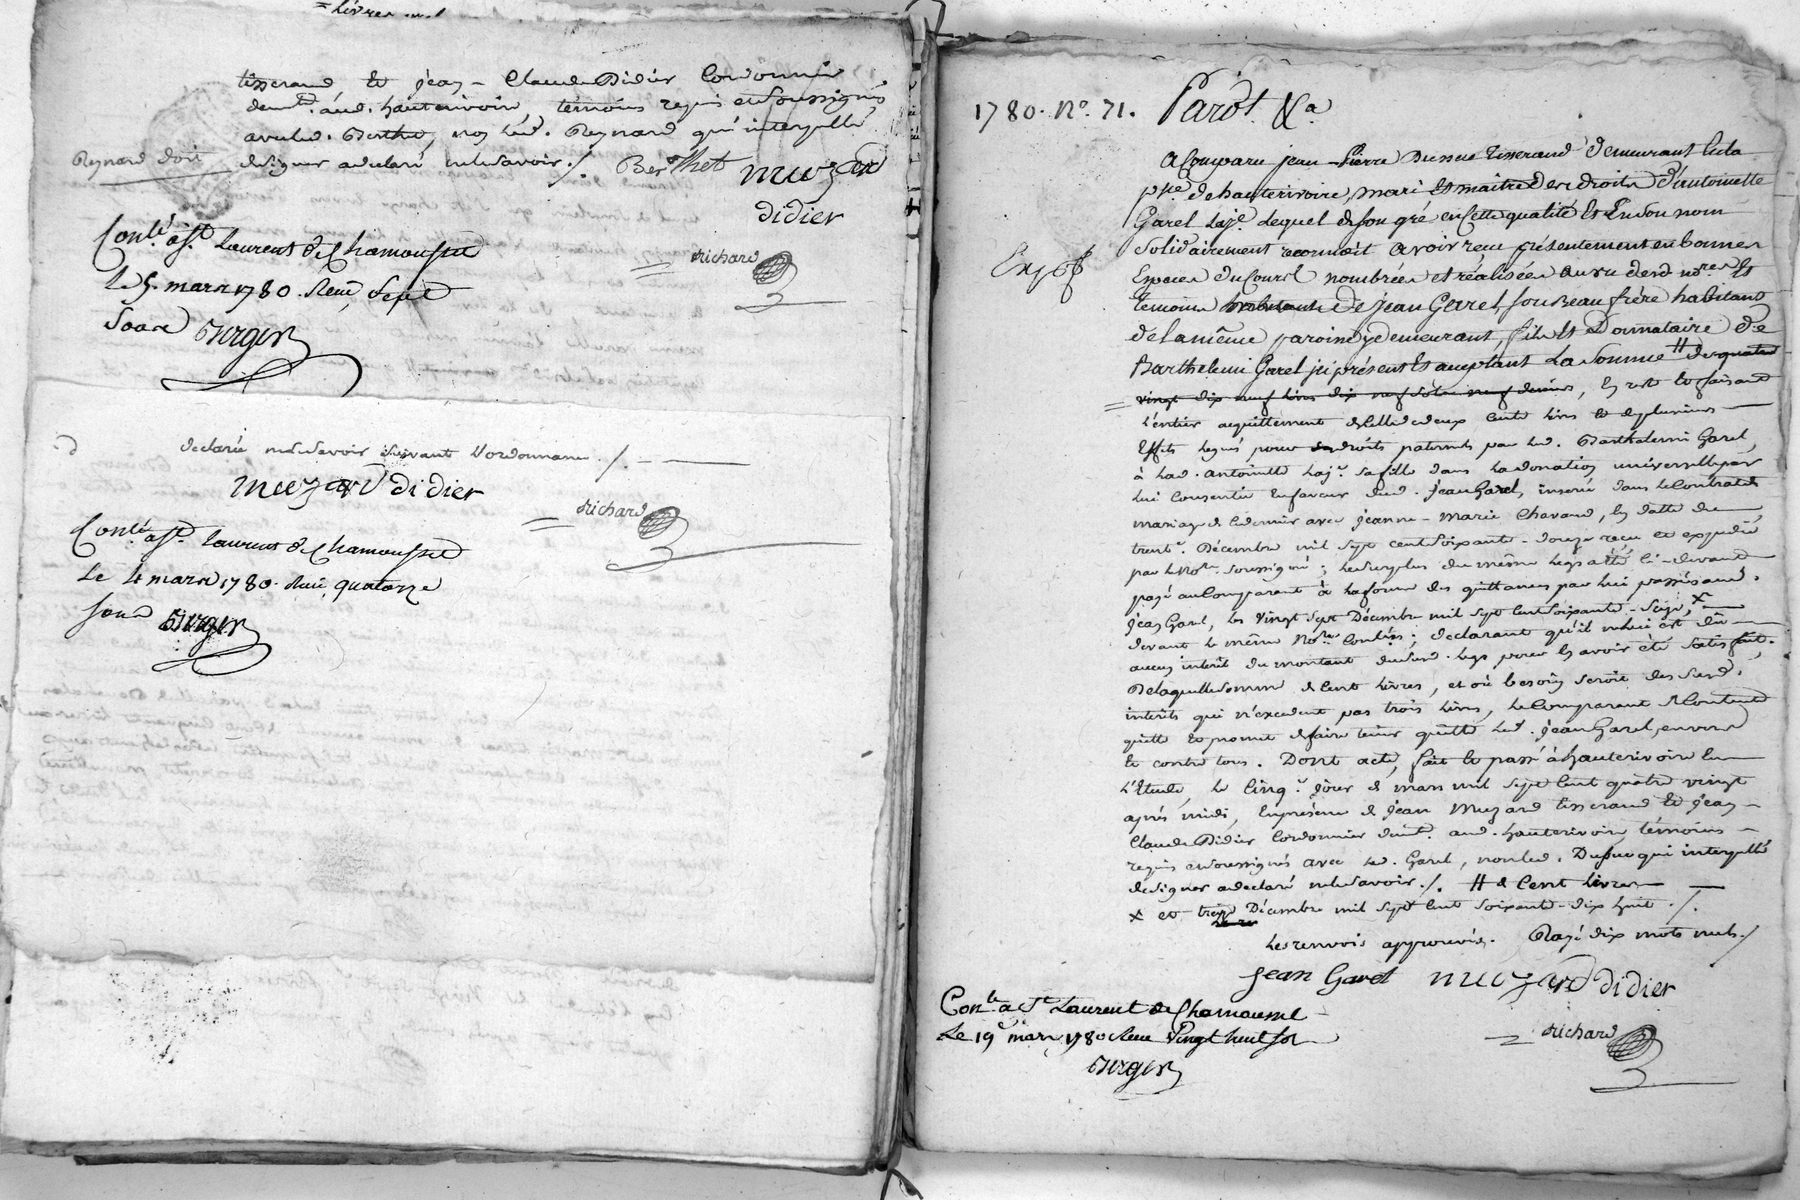 = Livres
tisserand et jean - Claude Didier Cordonnier
demt. aud. hauterivoire, témoins requis et soussignés
avec led. Berthet, non led. Reynard qui interpellé
Reynard doit
de signer a déclaré ne le savoir ./. Berthet muzard
didier
Conlé. à St. Laurent de Chamousset
richard
Le 5. mars 1780. Reçu Sept
Sols
Burger
declaré ne le savoir suivant l'ordonnance ./.
muzard didier
richard
Conlé. à St. Laurent de Chamousset
Le 4 mars 1780. Reçu quatorze
sous
Burger
1780. No. 71.
A Comparu jean-Pierre Dussuc tisserand demeurant en la
pse. de hauterivoire, mari et maitre des droits d'antoinette
Garel Laje. Lequel de son gré en cette qualité et En Son nom
Solidairement reconnoît avoir reçu présentement en bonnes
Exp.
Especes du Cours nombrées et réalisées au vu desd. nores. Et
temoins de jean Garel, son Beau frère habitant
de la même paroisse y demeurant, fils et Donnataire de
Barthelemi Garel ici présent Et acceptant La Somme # de quatre
= vingt dix neuf livres dix neuf sols neuf deniers, En reste et faisant
L'éntier acquittement de celle de deux Cents livres et de plusieurs
Effets legués pour ses droits paternels par led. Barthelemi Garel,
à lad. Antoinette Laje. sa fille dans la donation universelle par
lui Consentie En faveur dud. jean Garel, inserée dans le Contrat de
mariage de ce dernier avec jeanne-Marie Chavand, En datte du
trente. Décembre mil sept cent soixante-douze reçu et expedié
par le Nore. Soussigné; le surplus du même legs a été ci-devant
payé au Comparant à la forme des quittances par lui passées aud.
jean Garel, les Vingt Sept Décembre mil sept cent soixante-seize, x
devant le même Nore. Conlées; déclarant qu'il ne lui est dû
aucun interêt du montant dud. legs pour En avoir été satisfait.
De laquelle Somme de Cent livres, et où besoin seroit des susd.
interêts qui n'excedent pas trois livres, le Comparant se Contente
quitte et promet de faire tenir quitte led. jean Garel, envers
et contre tous. Dont acte, fait et passé à hauterivoire En
l'Etude, le Cinq. jour de mars mil sept cent quatre vingt
après midi, En présence de jean Muzard tisserand et jean
Claude Didier Cordonnier demt. aud. hauterivoire témoins
requis et soussignés avec led. Garel, non led. Dussuc qui interpellé
de signer a déclaré ne le savoir ./. # de Cent livres
x et treize Décembre mil sept cent soixante-dix huit ./.
Les renvois approuvés. Rayé dix mots nuls ./
jean Garel muzard didier
Conlé. à St. Laurent de Chamousset
richard
Le 19 mars 1780 Reçu Vingt huit sols
Burger